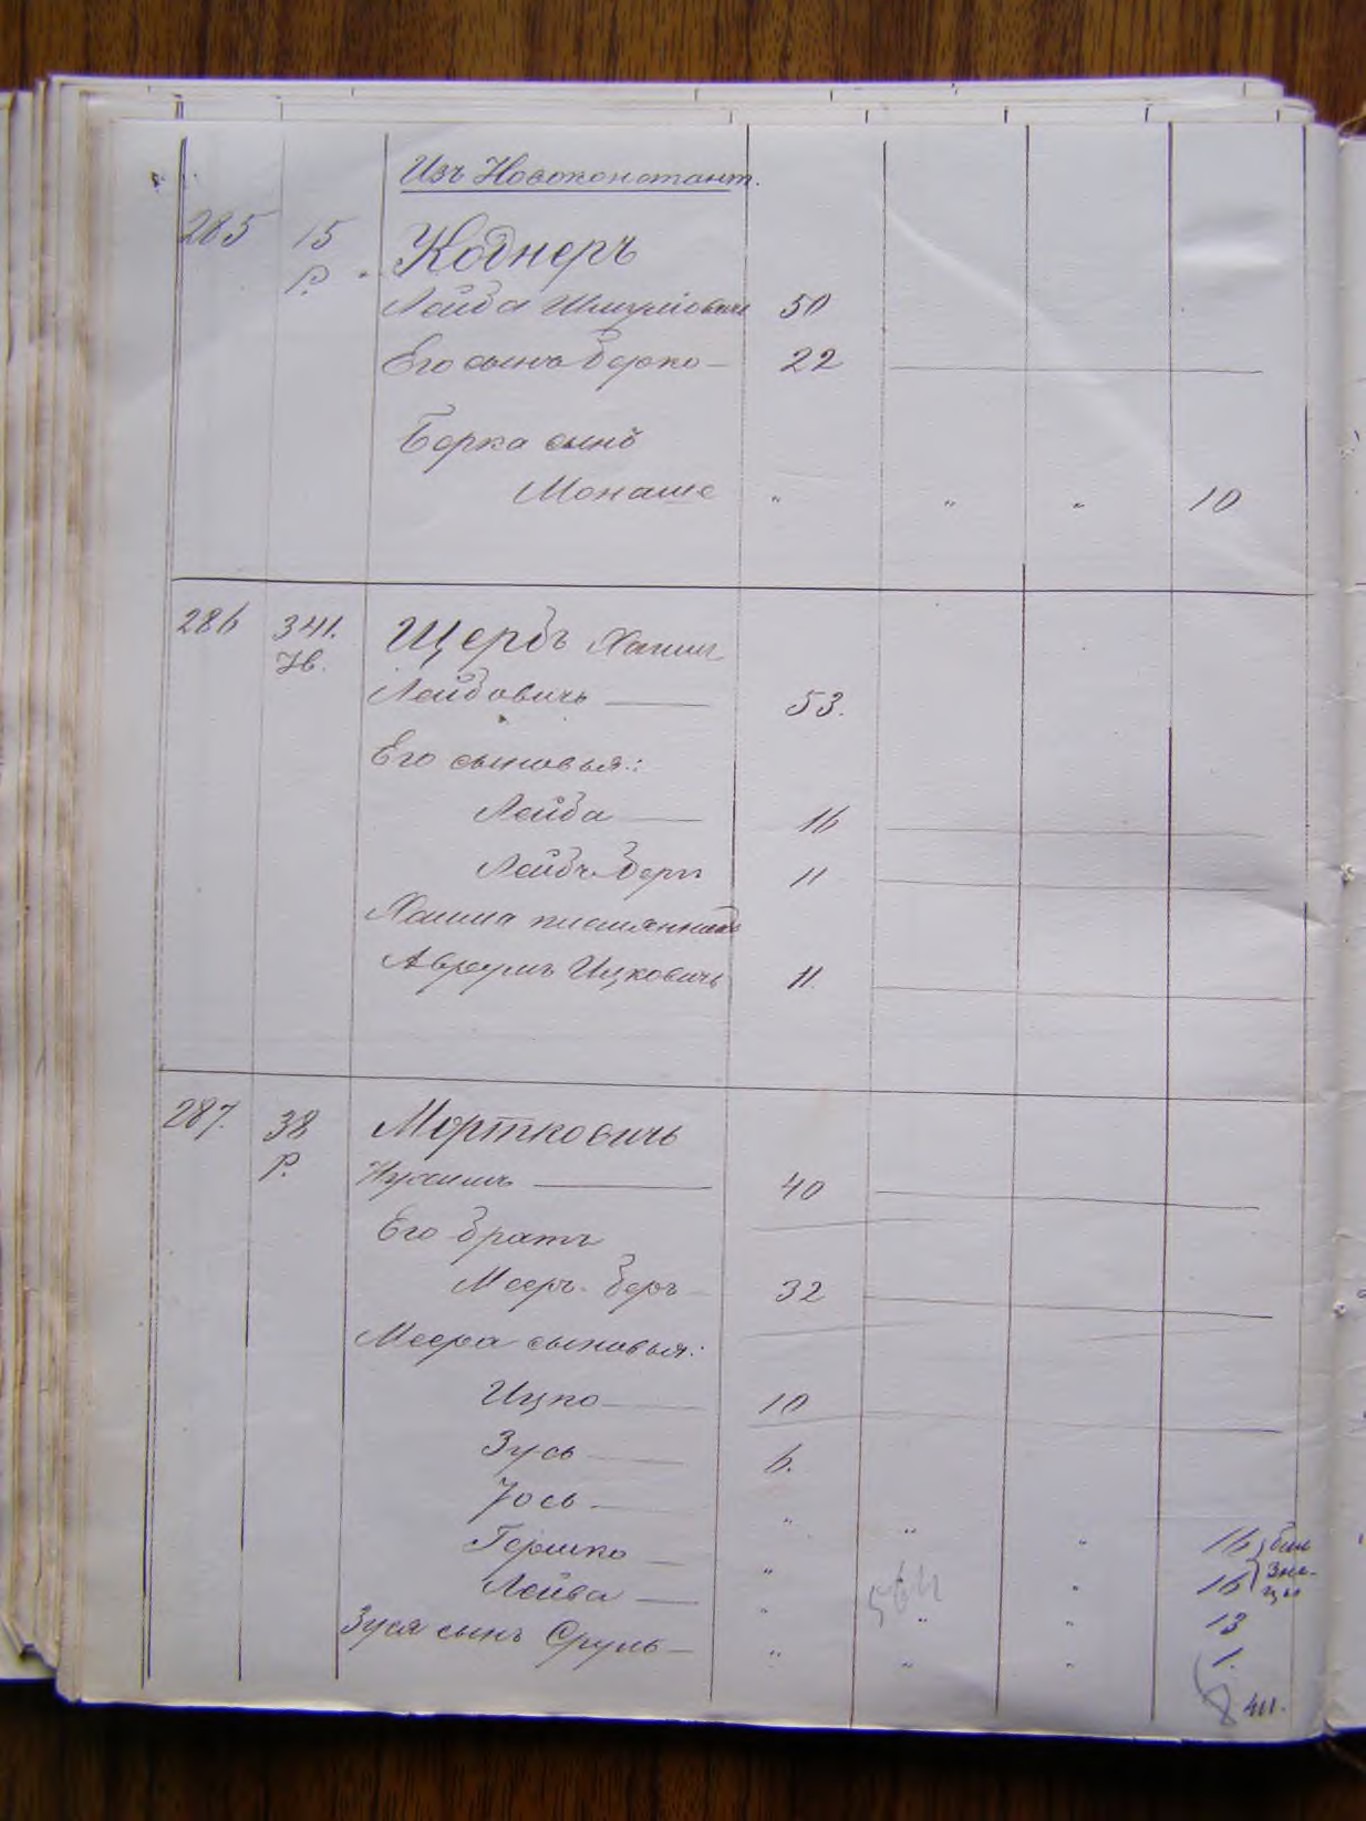 Изъ Новоконстант.
285 15 Коднеръ
Р.
Лейба Шмулiовичъ 50
Его сынъ Берко — 22
Берка сынъ
Монаше " " " 10
286 341. Щербъ Хаимъ
Нв.
Лейбовичъ — 53.
Его сыновья:
Лейба — 16
Лейбъ-Беръ 11
Хаима племянникъ
Аврумъ Ицковичъ 11.
287. 38 Мортковичъ
Р. Нухимъ — 40
Его братъ
Мееръ-Беръ 32
Меера сыновья:
Ицко — 10
Зусь — 6.
Iось — " " " 16 бли
Гершко — " " 16 зне-
цы
Лейба — " " " 13
Зуся сынъ Сруль — " " " 1.